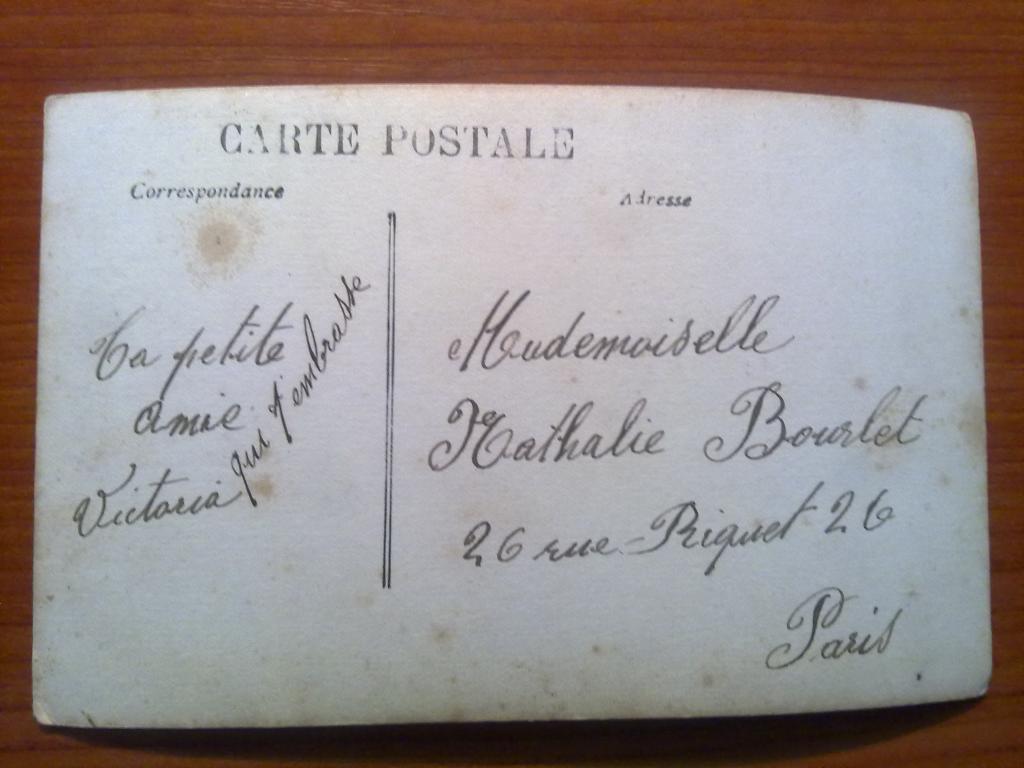 CARTE POSTALE
Correspondance
Ta petite
amie
Victoria qui t'embrasse
Adresse
Mademoiselle
Nathalie Bourlet
26 rue Riquet 26
Paris